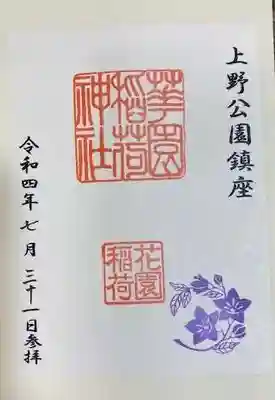 上野公園鎮座
華園
稲荷
神社
花園
稲荷
令和四年七月三十一日参拝